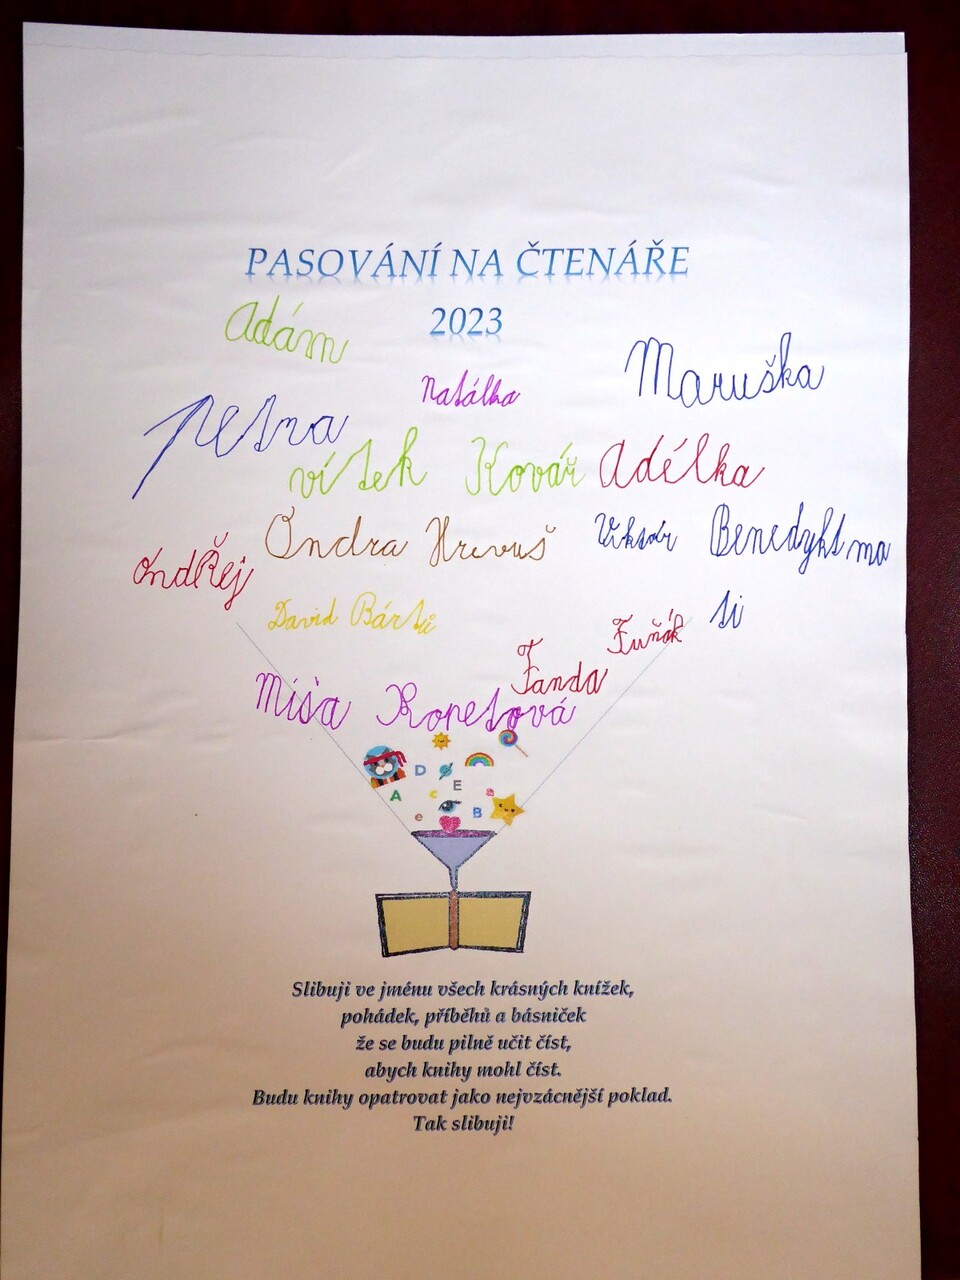 PASOVÁNÍ NA ČTENÁŘE
2023
Adám
Natálka
Maruška
Petra
vítek Kovář
Adélka
Ondřej
Ondra Hrevuš
Viktor
Benedykt ma
ti
David Bártů
Fanda Fuňák
Míša Kopetová
D
E
A
C
B
e
a
Slibuji ve jménu všech krásných knížek,
pohádek, příběhů a básniček
že se budu pilně učit číst,
abych knihy mohl číst.
Budu knihy opatrovat jako nejvzácnější poklad.
Tak slibuji!